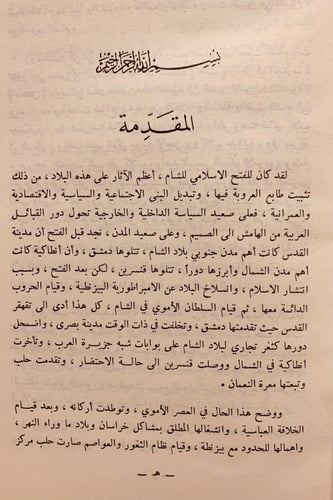 بسم الله الرحمن الرحيم
المقدّمة
لقد كان للفتح الاسلامي للشام ، أعظم الآثار على هذه البلاد ، من ذلك
تثبيت طابع العروبة فيها ، وتبديل البنى الاجتماعية والسياسية والاقتصادية
والعمرانية ، فعلى صعيد السياسة الداخلية والخارجية تحول دور القبائل
العربية من الهامش الى الصميم ، وعلى صعيد المدن ، نجد قبل الفتح أن مدينة
القدس كانت أهم مدن جنوبي بلاد الشام ، تتلوها دمشق ، وأن أنطاكية كانت
أهم مدن الشمال وأبرزها دوراً ، تتلوها قنسرين ، لكن بعد الفتح ، وبسبب
انتشار الاسلام ، وانسلاخ البلاد عن الامبراطورية البيزنطية ، وقيام الحروب
الدائمة معها ، ثم قيام السلطان الأموي في الشام ، كل هذا أدى الى تقهقر
القدس حيث تقدمتها دمشق ، وتخلفت في ذات الوقت مدينة بصرى ، واضمحل
دورها كثغر تجاري لبلاد الشام على بوابات شبه جزيرة العرب ، وتأخرت
أنطاكية في الشمال ووصلت قنسرين الى حالة الاحتضار ، وتقدمت حلب
وتبعتها معرة النعمان .
ووضح هذا الحال في العصر الأموي ، وتوطدت أركانه ، وبعد قيام
الخلافة العباسية ، وانشغالها المطلق بمشاكل خراسان وبلاد ما وراء النهر ،
واهمالها للحدود مع بيزنطة ، وقيام نظام الثغور والعواصم صارت حلب مركز
— هـ —